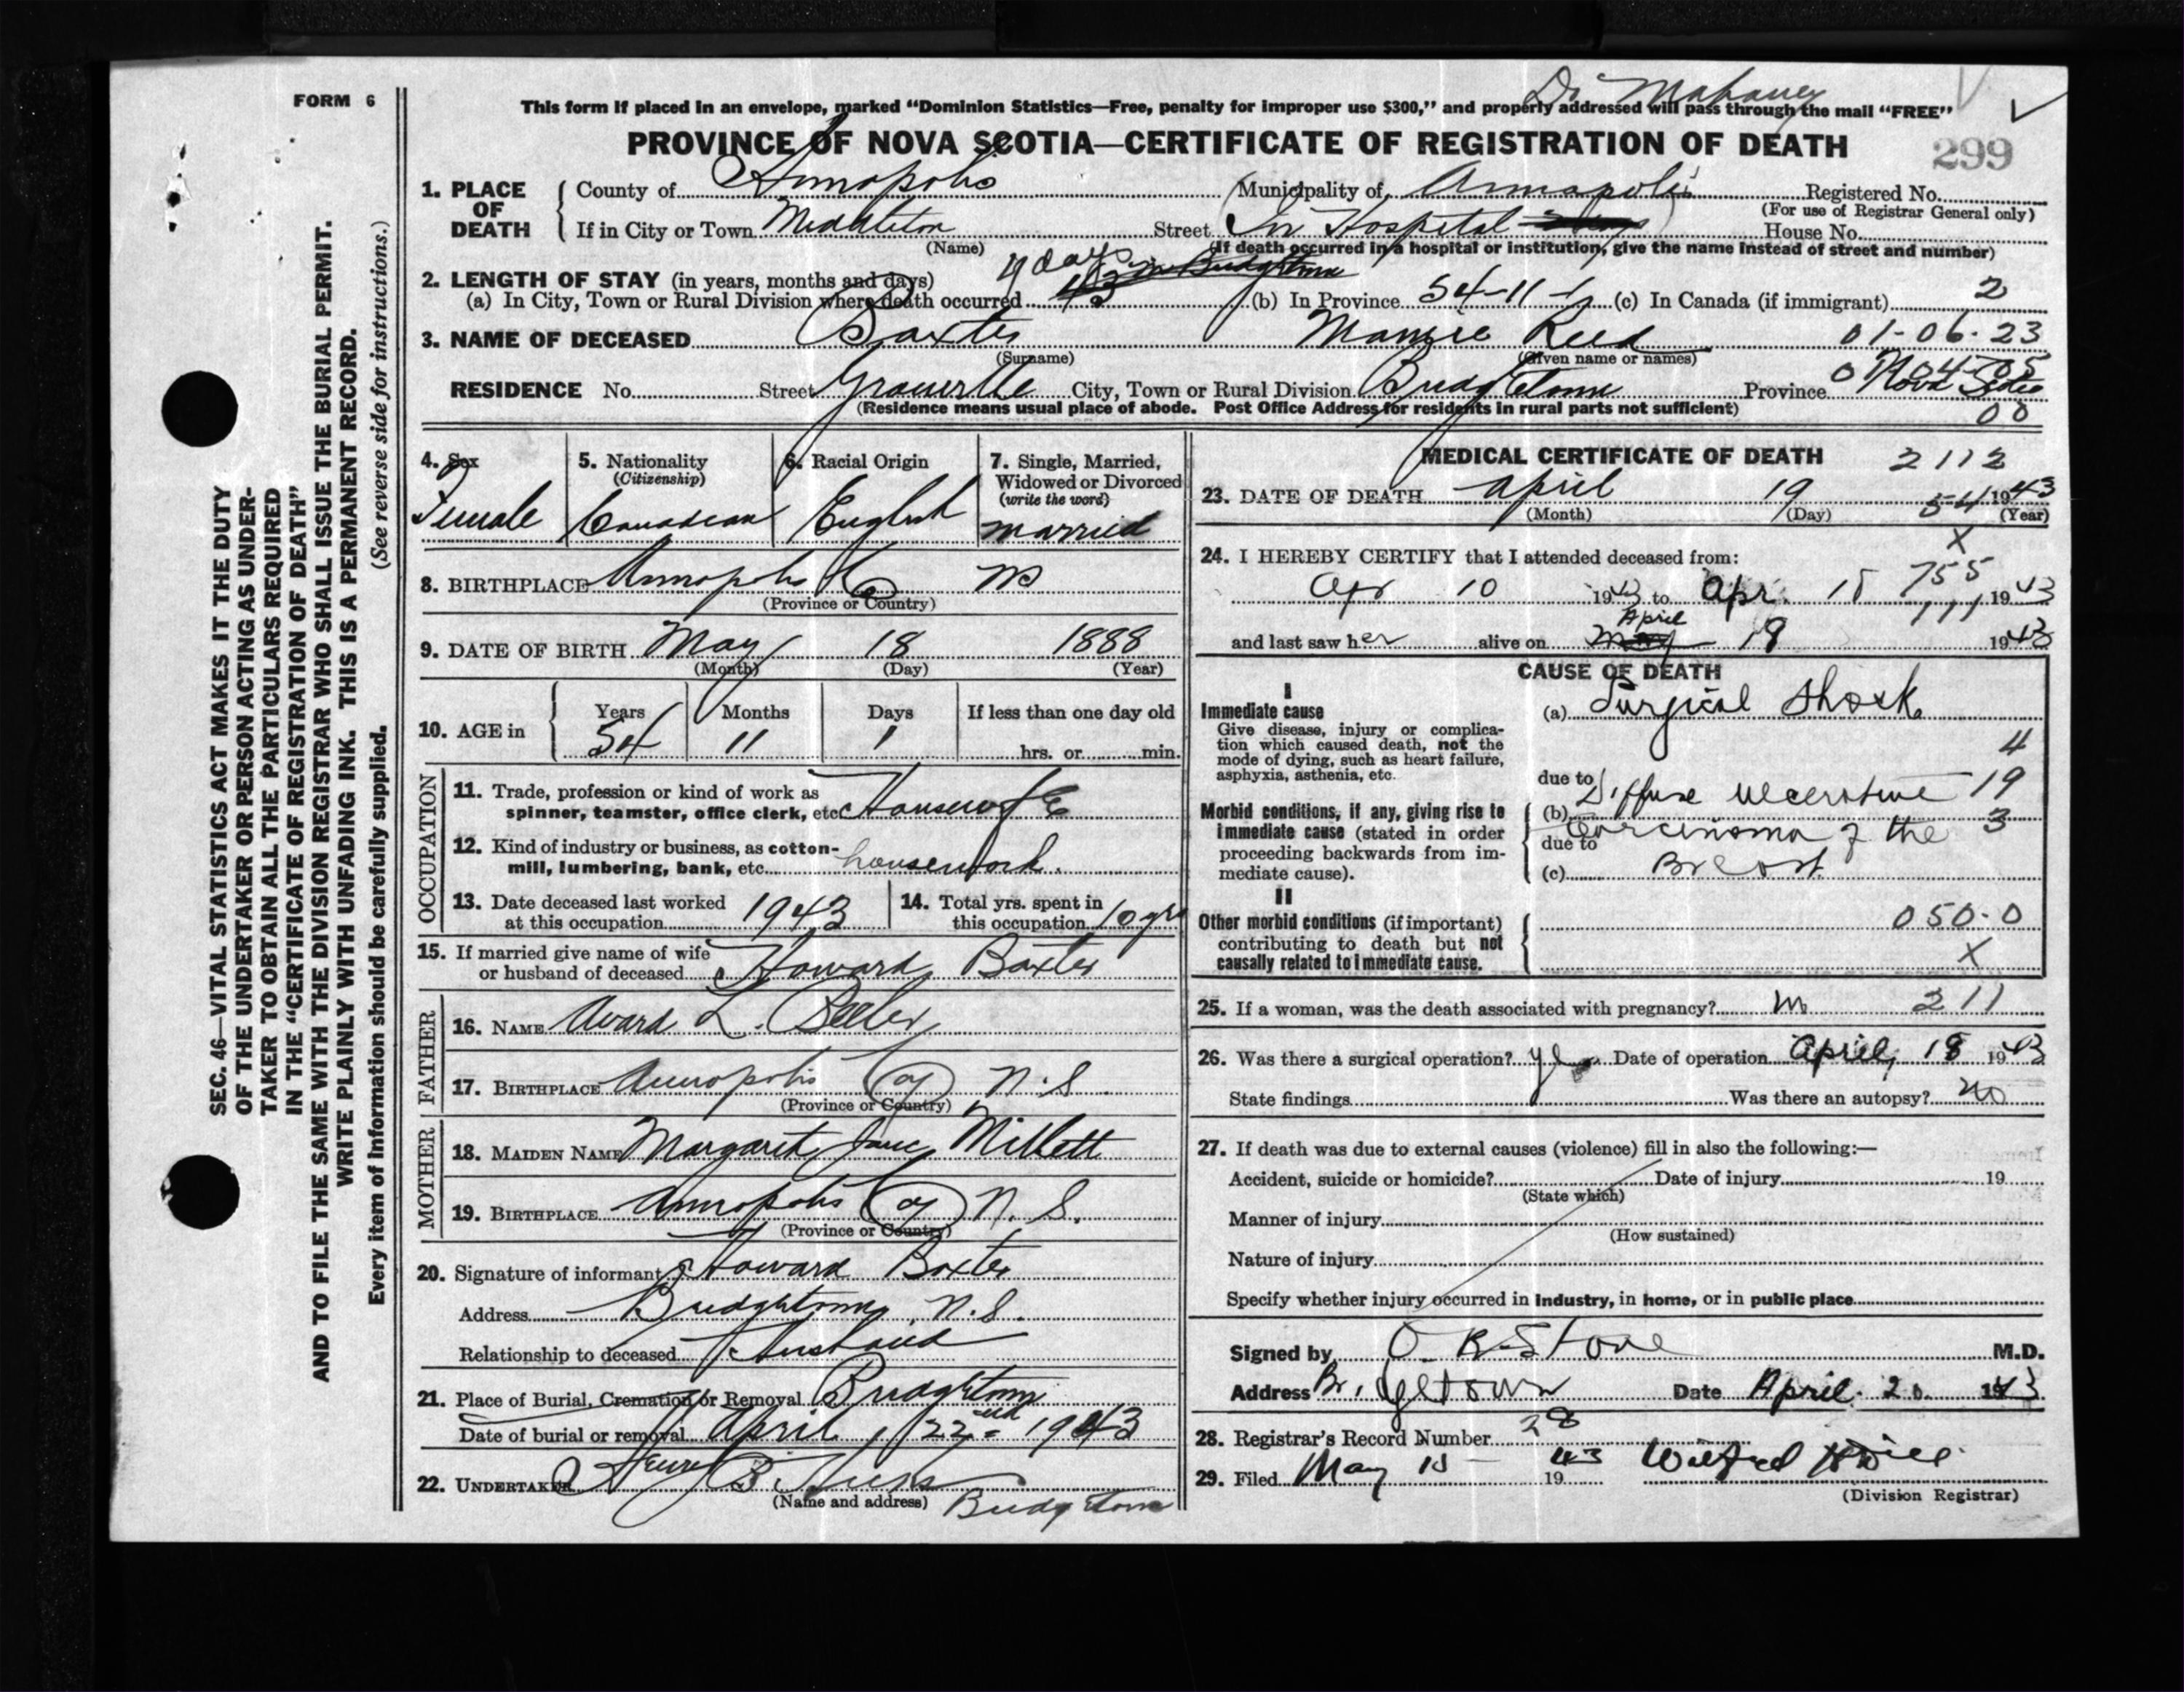 FORM 6
Dr Mahaney
This form if placed in an envelope, marked “Dominion Statistics—Free, penalty for improper use $300,” and properly addressed will pass through the mail “FREE”
PROVINCE OF NOVA SCOTIA—CERTIFICATE OF REGISTRATION OF DEATH
299
1. PLACE OF DEATH
County of Annapolis Municipality of Annapolis Registered No.
(For use of Registrar General only)
If in City or Town Middleton Street (In Hospital) House No.
(Name) (If death occurred in a hospital or institution, give the name instead of street and number)
2. LENGTH OF STAY (in years, months and days) 9 days in Bridgetown
(a) In City, Town or Rural Division where death occurred 43 (b) In Province 54-11-1 (c) In Canada (if immigrant) 2
3. NAME OF DECEASED Baxter Reed 01-06-23
(Surname) (Given name or names)
04-05
RESIDENCE No. Street Granville City, Town or Rural Division Bridgetown Province Nova Scotia
(Residence means usual place of abode. Post Office Address for residents in rural parts not sufficient) 00
4. Sex Female
5. Nationality (Citizenship) Canadian
6. Racial Origin English
7. Single, Married, Widowed or Divorced (write the word) married
8. BIRTHPLACE Annapolis Co NS
(Province or Country)
9. DATE OF BIRTH May 18 1888
(Month) (Day) (Year)
10. AGE in Years 54 Months 11 Days 1 If less than one day old hrs. or min.
OCCUPATION
11. Trade, profession or kind of work as spinner, teamster, office clerk, etc. Housewife
12. Kind of industry or business, as cotton-mill, lumbering, bank, etc. housework.
13. Date deceased last worked at this occupation 1943
14. Total yrs. spent in this occupation 10 yrs
15. If married give name of wife or husband of deceased Howard Baxter
FATHER
16. NAME Avard L. Beeler
17. BIRTHPLACE Annapolis Co N.S.
(Province or Country)
MOTHER
18. MAIDEN NAME Margaret Jane Millett
19. BIRTHPLACE Annapolis Co N.S.
(Province or Country)
20. Signature of informant Howard Baxter
Address Bridgetown, N.S.
Relationship to deceased Husband
21. Place of Burial, Cremation or Removal Bridgetown
Date of burial or removal April 22nd 1943
22. UNDERTAKER B. Hicks
(Name and address) Bridgetown
MEDICAL CERTIFICATE OF DEATH 2112
23. DATE OF DEATH April 19 1943
(Month) (Day) (Year)
54
X
24. I HEREBY CERTIFY that I attended deceased from:
755
Apr 10 1943 to Apr. 18 1943
111
and last saw her alive on May April 18 1943
CAUSE OF DEATH
I
Immediate cause
Give disease, injury or complication which caused death, not the mode of dying, such as heart failure, asphyxia, asthenia, etc.
(a) Surgical Shock
4
due to
19
Morbid conditions, if any, giving rise to immediate cause (stated in order proceeding backwards from immediate cause).
(b) Diffuse ulcerative
3
due to Carcinoma of the
(c) Breast
II
Other morbid conditions (if important) contributing to death but not causally related to immediate cause.
050.0
X
25. If a woman, was the death associated with pregnancy? no 211
26. Was there a surgical operation? yes Date of operation April 18 1943
State findings Was there an autopsy? no
27. If death was due to external causes (violence) fill in also the following:—
Accident, suicide or homicide? Date of injury 19
(State which)
Manner of injury
(How sustained)
Nature of injury
Specify whether injury occurred in industry, in home, or in public place
Signed by O. R. Stone M.D.
Address Bridgetown Date April 20. 1943
28. Registrar's Record Number 28
29. Filed May 15 1943 Wilfred
(Division Registrar)
SEC. 46—VITAL STATISTICS ACT MAKES IT THE DUTY
OF THE UNDERTAKER OR PERSON ACTING AS UNDER-
TAKER TO OBTAIN ALL THE PARTICULARS REQUIRED
IN THE “CERTIFICATE OF REGISTRATION OF DEATH”
AND TO FILE THE SAME WITH THE DIVISION REGISTRAR WHO SHALL ISSUE THE BURIAL PERMIT.
WRITE PLAINLY WITH UNFADING INK. THIS IS A PERMANENT RECORD.
Every item of information should be carefully supplied. (See reverse side for instructions.)